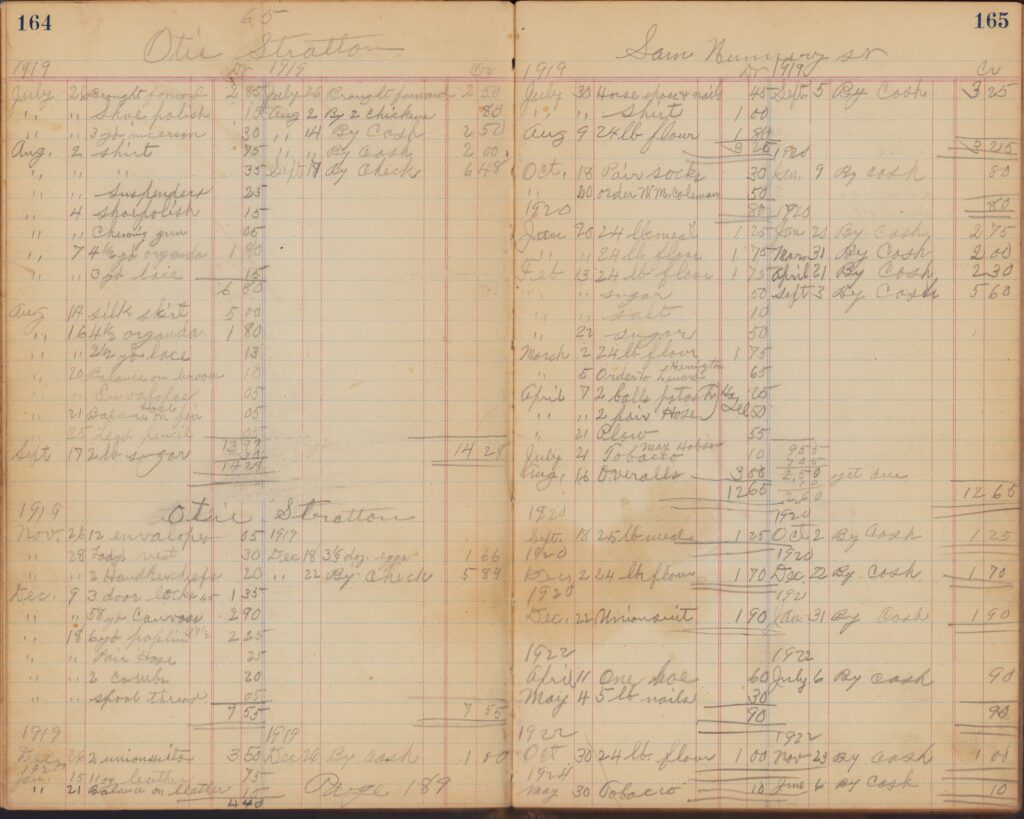 164
65
Otie Stratton
1919 Dr 1919 Cr
July 26 Brought forward 2 85 July 26 Brought forward 2 50
" " Shoe polish 15 Aug 2 By 2 chickens 80
" " 3 yd 30 " 14 By Cash 2 50
Aug. 2 shirt 75 " " By Cash 2 00
" " " 35 Sept 17 By Check 6 48
" " Suspenders 25
" 4 shoepolish 15
" " Chewing gum 05
" 7 4½ yd organda 1 80
" " 3 yd lace 15
6 80
Aug 14 silk skirt 5 00
" 16 4½ organda 1 80
" " 2½ yd lace 13
" 20 Balance on broom 10
" " Envalopes 05
" 21 Balance on Hose pair 05
" 25 Lead pencil 05
13 99 14 28
Sept 17 2 lb sugar
14 28
1919 Otie Stratton
Nov. 26 12 envalopes 05 1919
" 28 vest 30 Dec 18 3⅓ doz eggs 1 66
" " 2 Handkerchiefs 20 " 22 By Check 5 89
Dec. 9 3 door locks 45 1 35
" " yd Canvass 2 90
" 18 6 yd poplin 37½ 2 25
" " Pair Hose 25
" " 2 combs 20
" " spool thread 05
7 55 7 55
1919 1919
Dec 26 2 unionsuits 3 50 Dec 26 By cash 1 00
Jan. 15 leather 75
" 21 Balance on leather 15
4 40
Page 189
165
Sam sr
1919 Dr 1919 Cr
July 30 Horse shoes & nails 45 Sept. 5 By Cash 3 25
" " Shirt 1 00
Aug 9 24 lb flour 1 80
3 25 1920 3 25
Oct. 18 Pair socks 30 Jan. 9 By cash 80
" 20 order W. M. Coleman 50
1920 80 1920 80
Jan 20 24 lb meal 1 25 Jan 20 By Cash 2 75
" " 24 lb flour 1 75 Mar 31 By Cash 2 00
Feb 13 24 lb flour 1 75 April 21 By Cash 2 30
" " sugar 50 Sept 3 By Cash 5 60
" " salt 10
" 22 sugar 50
March 2 24 lb flour 1 75
" 5 Order to 65
April 7 2 balls
" " 2 pair Hose 50
" 21 Plow 55
July 21 Tobacco Max Hobson 10
Aug. 16 Overalls 3 00 2.50 yet due
12 65 2.60 12 65
1920 1920
Sept. 18 25 lb meal 1 25 Oct 2 By Cash 1 25
1920 1920
Dec 2 24 lb. flour 1 70 Dec 22 By Cash 1 70
1920 1921
Dec. 22 Unionsuit 1 90 Jan. 31 By Cash 1 90
1922 1922
April 11 One hoe 60 July 6 By cash 90
May 4 5 lb nails 30
90 90
1922 1922
Oct 30 24 lb. flour 1 00 Nov 23 By Cash 1 00
1924
May 30 Tobacco 10 June 6 By Cash 10